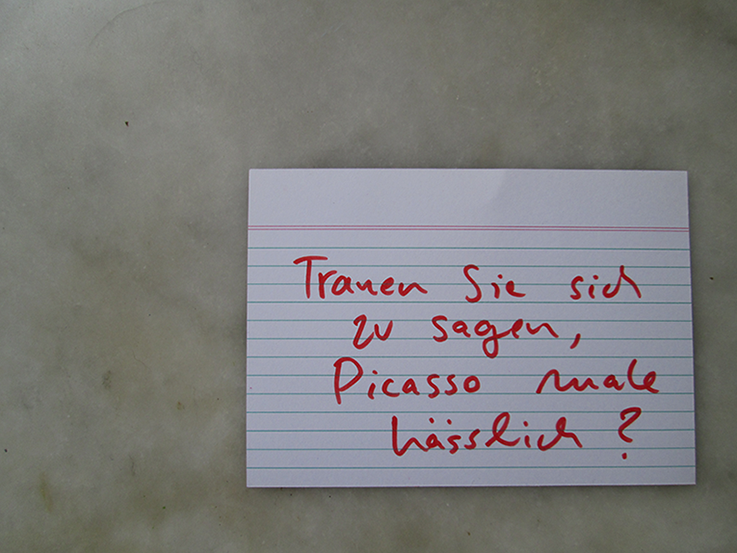 Trauen Sie sich
zu sagen,
Picasso male
hässlich?